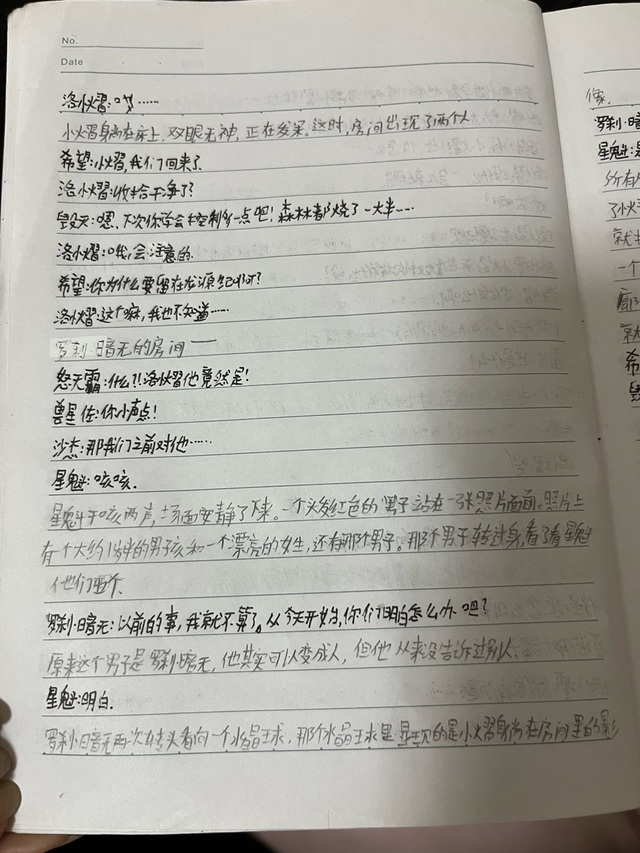 No.
Date
洛小熠:哎……
小火熠身躺在床上,双眼无神,正在发呆。这时,房间出现了两个人
希望:小熠,我们回来了
洛小熠:收拾干净了?
毁灭:嗯,下次你学会控制多一点吧!森林都烧了一大半……
洛小熠:哦,会注意的.
希望:你为什么要留在龙源
洛小熠:这个嘛,我也不知道……
罗刹·暗无的房间——
怒天霸:什么?!洛小熠他竟然是!
兽星佐:你小声点!
沙杰:那我们之前对他……
星魁:咳咳.
星魁干咳两声,场面安静了下来。一个头发红色的男子站在一张照片面前。照片上
有个大约 的男孩和一个漂亮的女生,还有那个男子。那个男子转过身,看了看星魁
他们 个.
罗刹·暗无:以前的事,我就不算了。从今天开始,你们明白怎么办吧?
原来这个男子是罗刹·暗无,他其实可以变成人,但他从来没告诉过别人.
星魁:明白.
罗刹·暗无再次转头看向一个水晶球,那个水晶球里显现的是小熠身躺在房间里的影
像.
罗刹·暗
星魁:是
所有
了小火
就
一个
就
希
毁